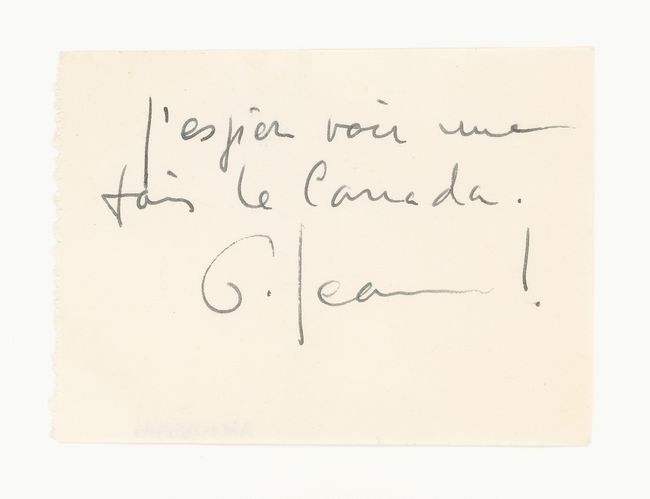 j'espier voir une
fois le Canada.
G. Jean !